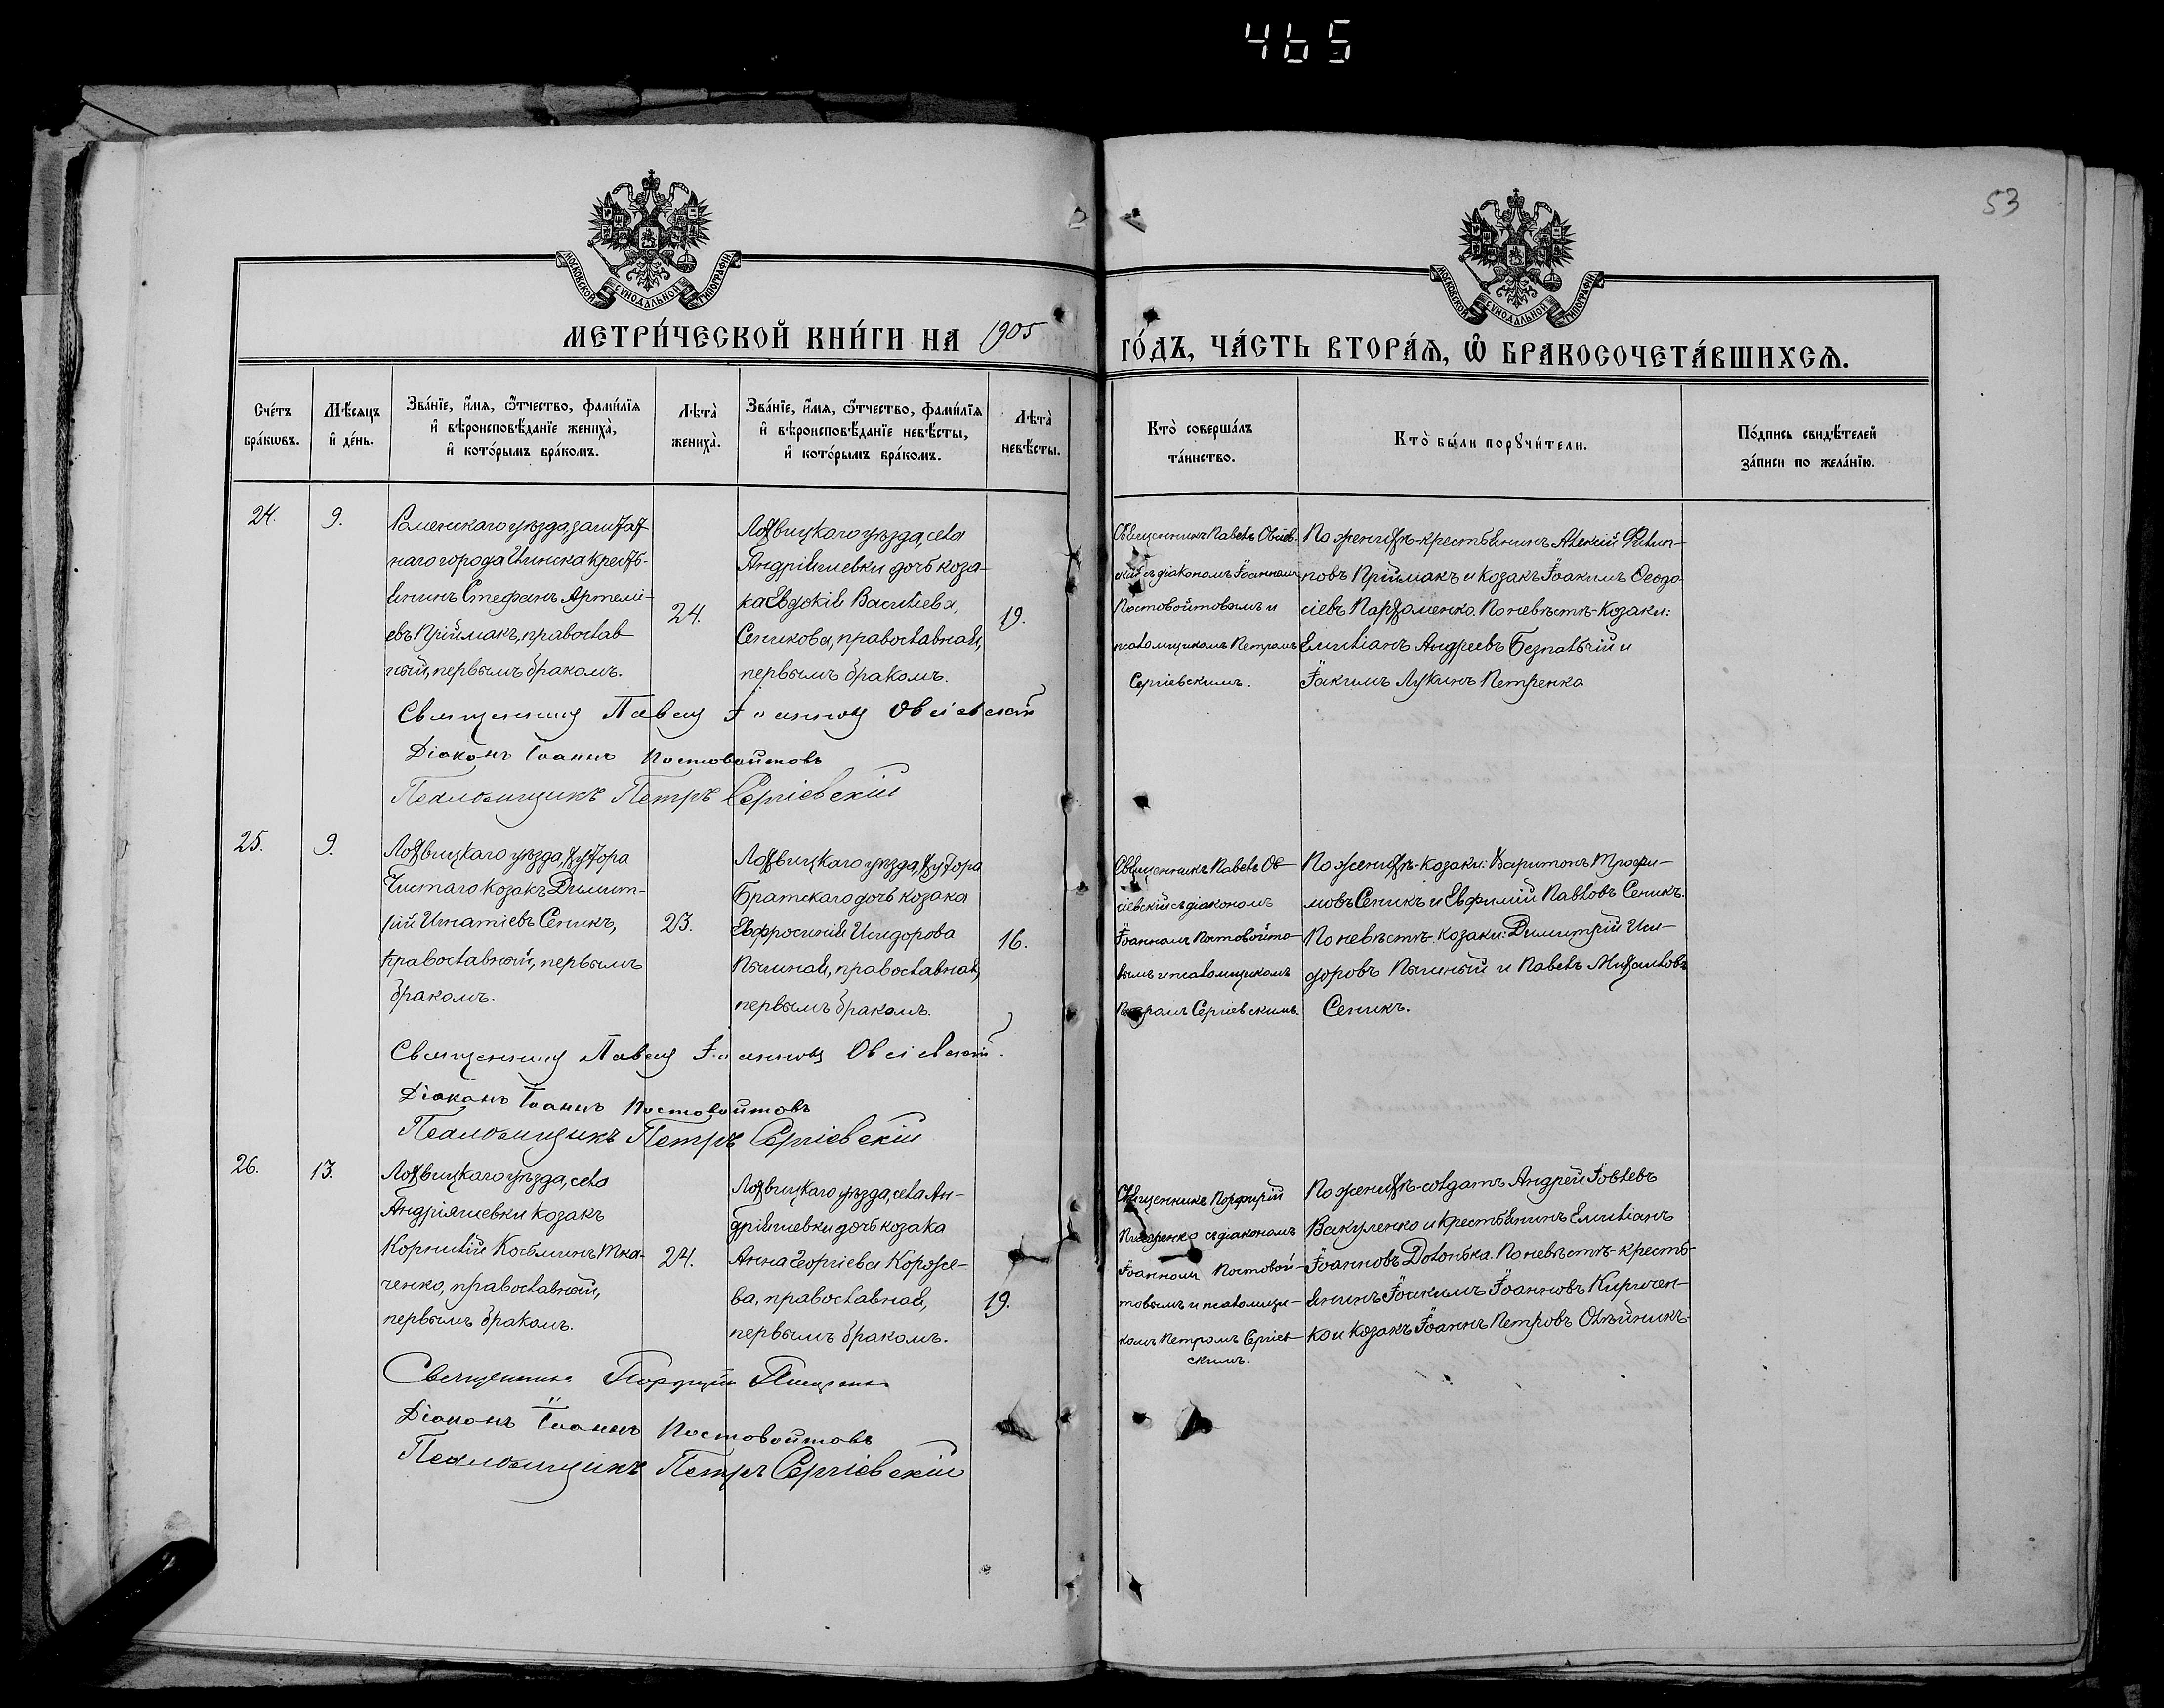 465
53
МОСКОВСКОЙ СѴНОДАЛЬНОЙ ТИПОГРАФІИ
МОСКОВСКОЙ СѴНОДАЛЬНОЙ ТИПОГРАФІИ
МЕТРИ́ЧЕСКОЙ КНИ́ГИ НА 1905 ГО́ДЪ, ЧА́СТЬ ВТОРА́Я, Ѡ БРАКОСОЧЕТА́ВШИХСЯ.
Сче́тъ
бра́кѡвъ.
Мѣ́сяцъ
и҆ де́нь.
Зва́нїе, и҆́мя, ѻ҆́тчество, фами́лїя
и҆ вѣроисповѣ́данїе жениха̀,
и҆ кото́рымъ бра́комъ.
Лѣта̀
жениха̀.
Зва́нїе, и҆́мя, ѻ҆́тчество, фами́лїя
и҆ вѣроисповѣ́данїе невѣ́сты,
и҆ кото́рымъ бра́комъ.
Лѣта̀
невѣ́сты.
Кто̀ соверша́лъ
та́инство.
Кто̀ бы́ли порꙋчи́тели.
По́дпись свидѣ́телей
за́писи по жела́нїю.
24.
9.
Роменскаго уѣзда заштат
наго города Глинска крестъ-
янинъ Стефанъ Артемі-
евъ Пріймакъ, православ
ный, первымъ бракомъ.
24.
Лохвицкаго уѣзда, села
Андріяшевки дочь коза-
ка Евдокія Василіева,
Сеникова, православная,
первымъ бракомъ.
19.
Священникъ Павелъ Овсіев-
скій съ діакономъ Іоанномъ
Постовойтовымъ и
псаломщикомъ Петромъ
Сергіевскимъ.
По женихѣ-крестьянинъ Алексій Филип-
повъ Пріймакъ и козакъ Іоакимъ Ѳеодо
сіевъ Пархоменко. По невѣстѣ-козаки:
Емиліанъ Андреевъ Безпалый и
Іакимъ Лукинъ Петренко
Священникъ Павелъ Іоанновъ Овсіевскій
Діаконъ Іоаннъ Постовойтовъ
Псаломщикъ Петръ Сергіевскій
25.
9.
Лохвицкаго уѣзда, хутора
Чистаго козакъ Димит-
рій Игнатіевъ Сеникъ,
православный, первымъ
бракомъ.
23.
Лохвицкаго уѣзда, хутора
Братскаго дочь козака
Евфросинія Исидорова
православная,
первымъ бракомъ.
16.
Священникъ Павелъ Ов
сіевскій съ діакономъ
Іоанномъ Постовойто-
вымъ и псаломщикомъ
Петромъ Сергіевскимъ.
По женихѣ-козаки: Харитонъ Трофи-
мовъ Сеникъ и Евфимій Павловъ Сеникъ.
По невѣстѣ-козаки: Димитрій Иси-
доровъ и Павелъ Михаиловъ
Сеникъ.
Священникъ Павелъ Іоанновъ Овсіевскій.
Діаконъ Іоаннъ Постовойтовъ
Псаломщикъ Петръ Сергіевскій
26.
13.
Лохвицкаго уѣзда, села
Андріяшевки козакъ
Корнилій Косьминъ Тка-
ченко, православный,
первымъ бракомъ.
24.
Лохвицкаго уѣзда, села Ан-
дріяшевки дочь козака
Анна Георгіева Короже-
ва, православная,
первымъ бракомъ.
19.
Священникъ Порфирій
съ діакономъ
Іоанномъ Постовой-
товымъ и псаломщи-
комъ Петромъ Сергіев
скимъ.
По женихѣ-солдатъ Андрей Іовлевъ
Вакуленко и крестьянинъ Емиліанъ
Іоанновъ Долонька. По невѣстѣ-кресть-
янинъ Іоакимъ Іоанновъ Киричен-
ко и козакъ Іоаннъ Петровъ Олѣйникъ
Священникъ Порфирій
Діаконъ Іоаннъ Постовойтовъ
Псаломщикъ Петръ Сергіевскій